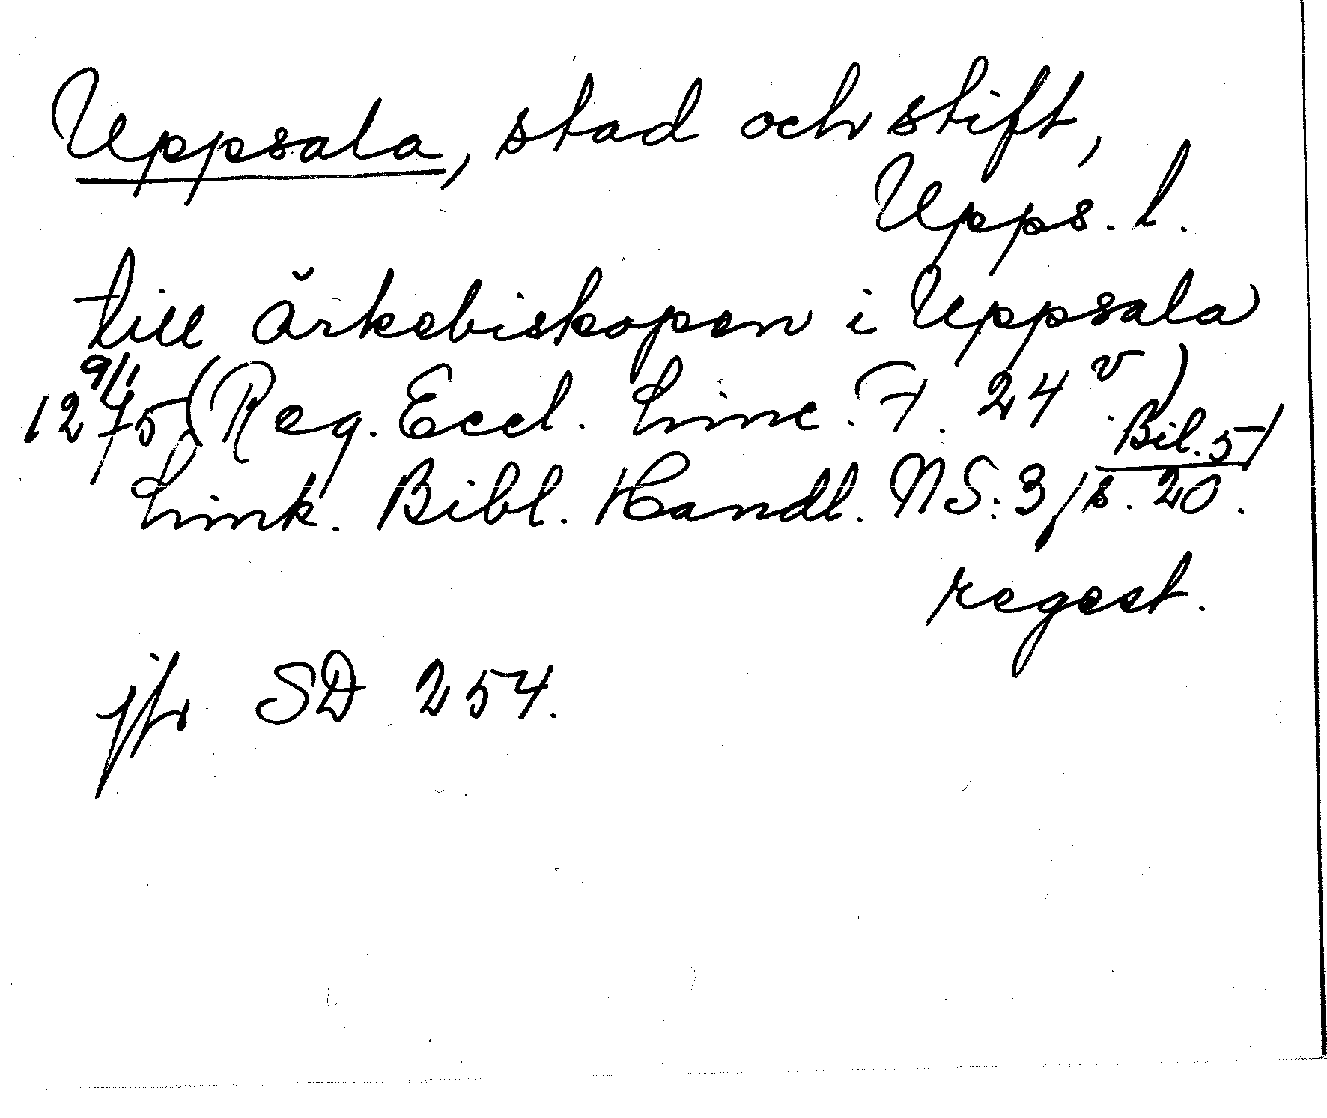 Uppsala, stad och stift,
Upps. l.
till ärkebiskopen i Uppsala
9/1 1275 (Reg. Eccl. Linc. F. 24 v.)
Link. Bibl. Handl. NS: 3, Bil. 5/ s. 20.
regest.
jfr SD 254.